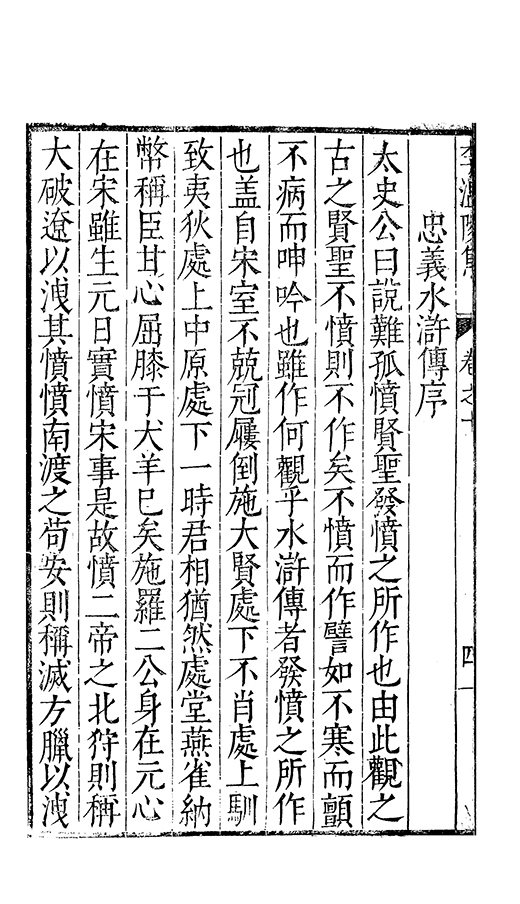 李溫陵集 卷之十 四一
忠義水滸傳序
太史公曰說難孤憤賢聖發憤之所作也由此觀之
古之賢聖不憤則不作矣不憤而作譬如不寒而顫
不病而呻吟也雖作何觀乎水滸傳者發憤之所作
也盖自宋室不兢冠屨倒施大賢處下不肖處上馴
致夷狄處上中原處下一時君相猶然處堂燕雀納
幣稱臣甘心屈膝于犬羊巳矣施羅二公身在元心
在宋雖生元日實憤宋事是故憤二帝之北狩則稱
大破遼以洩其憤憤南渡之苟安則稱滅方臘以洩